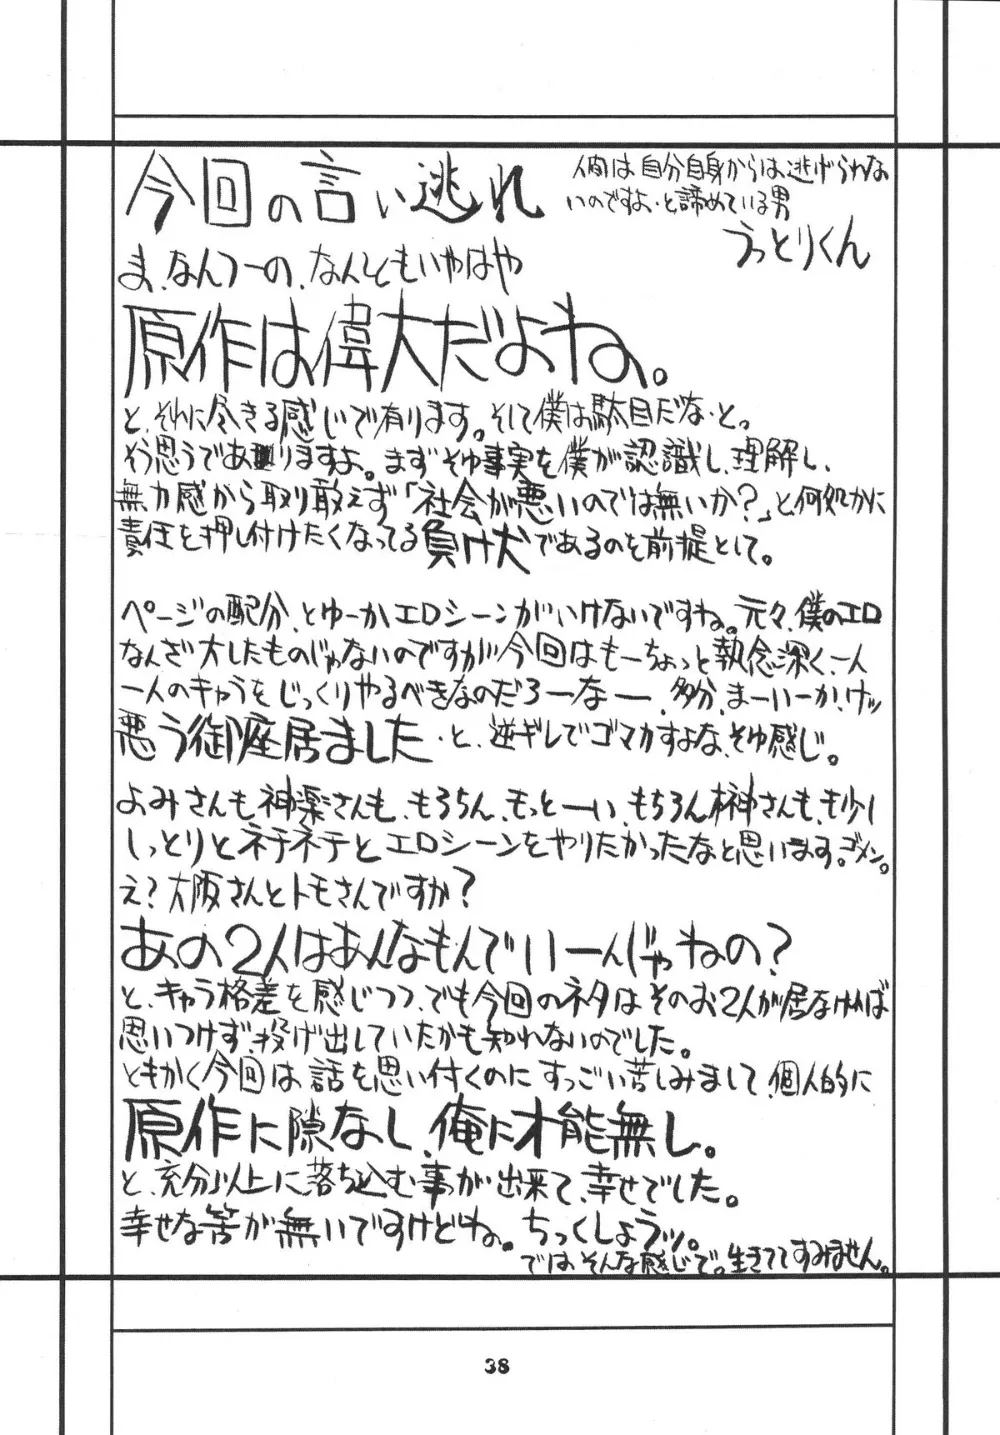 今回の言い逃れ
人間は自分自身からは逃げられな
いのですよ・と諦めている男
うっとりくん
ま、なんつーの、なんともいやはや
原作は偉大だよね。
と、それに尽きる感じで有ります。そして僕は駄目だな・と。
そう思うでありますよ。まずそゆ事実を僕が認識し、理解し、
無力感から取り敢えず「社会が悪いのでは無いか?」と何処かに
責任を押し付けたくなってる負け犬であるのを前提として。
ページの配分、とゆーかエロシーンがいけないですね。元々、僕のエロ
なんざ大したものじゃないのですが今回はもーちょっと執念深く、一人
一人のキャラをじっくりやるべきなのだろーなー、多分、まーいーか、ケッ
悪う御座居ました・と、逆ギレでゴマカすよな、そゆ感じ。
よみさんも神楽さんも、もろちん、もっとーい、もちろん榊さんも、も少し
しっとりとネチネチとエロシーンをやりたかったなと思います。ゴメン。
え?大阪さんとトモさんですか?
あの2人はあんなもんでいーんじゃねの?
と、キャラ格差を感じつつ、でも今回のネタはそのお2人が居なければ
思いつけず投げ出していたかも知れないのでした。
ともかく今回は話を思い付くのにすっごい苦しみまして、個人的に
原作に隙なし、俺に才能無し。
と、充分以上に落ち込む事が出来て、幸せでした。
幸せな筈が無いですけどね。ちっくしょうッ。
では、そんな感じで。生きててすみません。
38